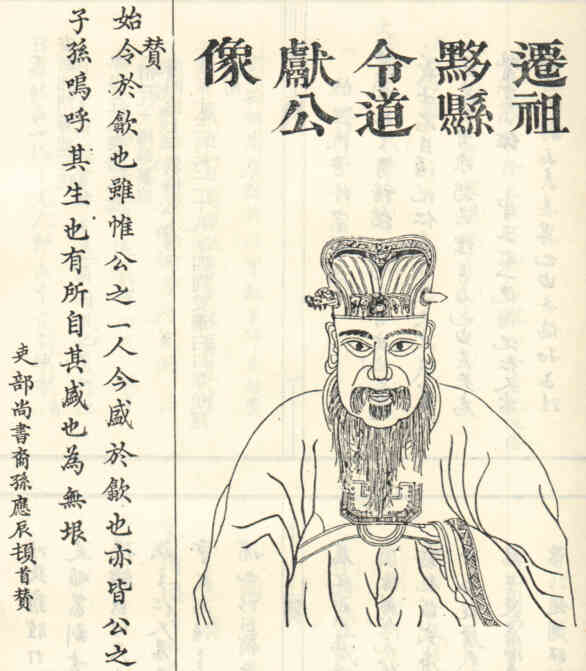 遷祖
黟縣
令道
獻公
像
贊
始令於歙也雖惟公之一人今盛於歙也亦皆公之
子孫嗚呼其生也有所自其盛也為無垠
吏部尚書裔孫應辰頓首贊